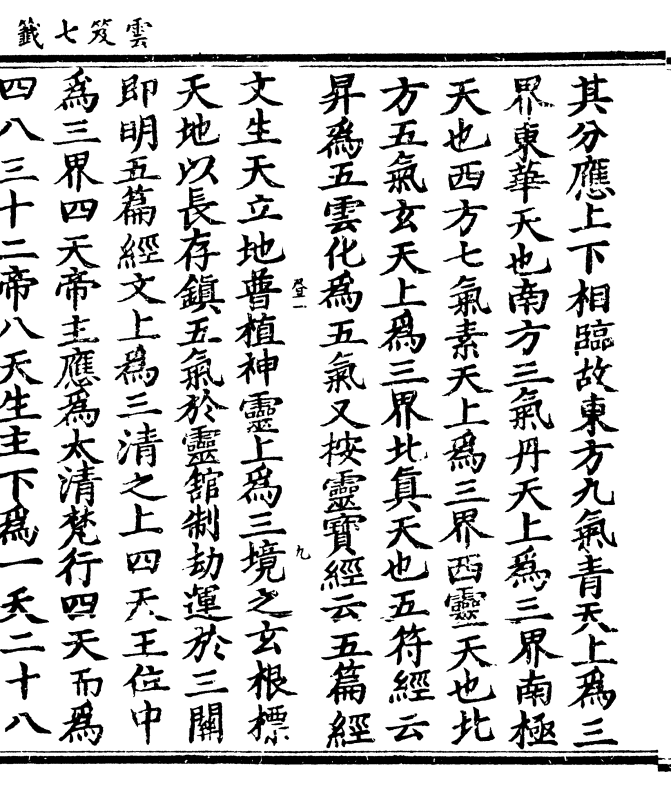 雲笈七籤
其分應上下相臨故東方九氣青天上爲三
界東華天也南方三氣丹天上爲三界南極
天也西方七氣素天上爲三界西靈天也北
方五氣玄天上爲三界北真天也五符經云
昇爲五雲化爲五氣又按靈寶經云五篇經
登一 九
文生天立地普植神靈上爲三境之玄根標
天地以長存鎮五氣於靈舘制劫運於三關
即明五篇經文上爲三清之上四天王位中
爲三界四天帝主應爲太清梵行四天而爲
四八三十二帝八天生主下爲一天二十八